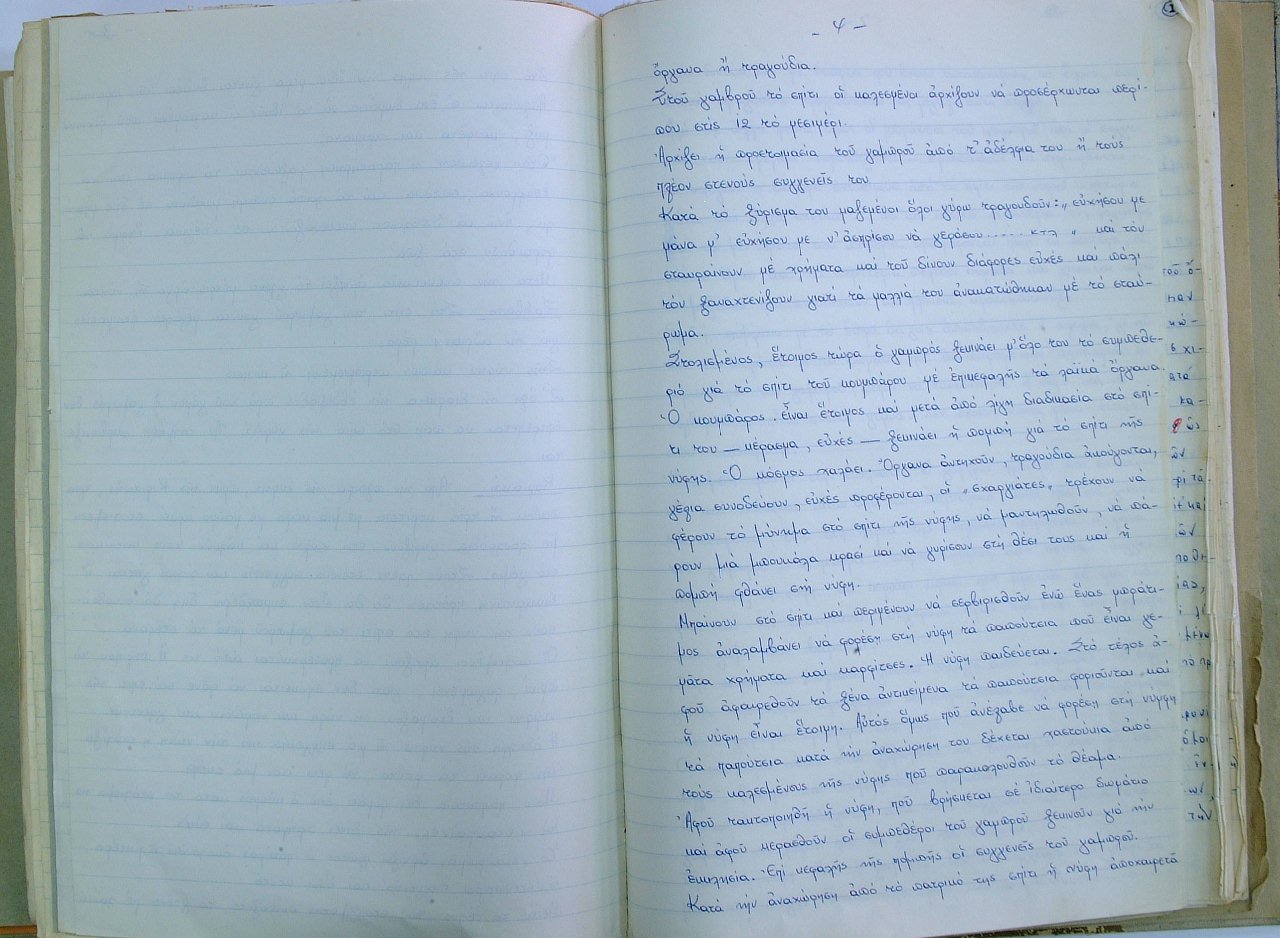 - 4 -
ὄργανα ἤ τραγούδια.
Στοῦ γαμβροῦ τό σπίτι οἱ καλεσμένοι ἀρχίζουν νά προσέρχωνται περί-
που στίς 12 τό μεσιμέρι.
Ἀρχίζει ἡ προετοιμασία τοῦ γαμπροῦ ἀπό τ' ἀδέλφια του ἤ τούς
πλέον στενούς συγγενεῖς του
Κατά τό ξύρισμα του μαζεμένοι ὅλοι γύρω τραγουδοῦν: „ εὐχήσου με
μάνα μ' εὐχήσου με ν' ἀσπρίσω νά γεράσω...... κτλ „ καί τόν
σταυρώνουν μέ χρήματα καί τοῦ δίνουν διάφορες εὐχές καί πάλι
τόν ξαναχτενίζουν γιατί τά μαλλιά του ἀνακατώθηκαν μέ τό σταύ-
ρωμα.
Στολισμένος, ἕτοιμος τώρα ὁ γαμπρός ξεκινάει μ' ὅλο του τό συμπεθε-
ριό γιά τό σπίτι τοῦ κουμπάρου μέ ἐπικεφαλῆς τά λαϊκά ὄργανα.
Ὁ κουμπάρος. εἶναι ἕτοιμος καί μετά ἀπό λίγη διαδικασία στό σπί-
τι του — κέρασμα, εὐχές — ξεκινάει ἡ πομπή γιά τό σπίτι τῆς
νύφης. Ὁ κόσμος χαλάει. Ὄργανα ἀντηχοῦν, τραγούδια ἀκούγονται,
γέλια συνοδεύουν, εὐχές προφέρονται, οἱ „ σχαργιάτες „ τρέχουν νά
φέρουν τό μύνημα στό σπίτι τῆς νύφης, νά μαντηλωθοῦν, νά πά-
ρουν μιά μπουκάλα κρασί καί νά γυρίσουν στή θέσι τους καί ἡ
πομπή φθάνει στή νύφη.
Μπαίνουν στό σπίτι καί περιμένουν νά σερβιρισθοῦν ἐνῶ ἕνας μπράτι-
μος ἀναλαμβάνει νά φορέση στή νύφη τά παπούτσια πού εἶναι γε-
μᾶτα χρήματα καί καρφίτσες. Ἡ νύφη παιδεύεται. Στό τέλος ἀ-
φοῦ ἀφαιρεθοῦν τά ξένα ἀντικείμενα τά παπούτσια φοριοῦνται καί
ἡ νύφη εἶναι ἕτοιμη. Αὐτός ὅμως πού ἀνέλαβε νά φορέση στή νύφη
τά παπούτσια κατά τήν ἀναχώρηση του δέχεται χαστούκια ἀπό
τούς καλεσμένους τῆς νύφης πού παρακολουθοῦν τό θέαμα.
Ἀφοῦ τακτοποιηθῆ ἡ νύφη, πού βρίσκεται σέ ἰδιαίτερο δωμάτιο
καί ἀφοῦ κερασθοῦν οἱ συμπεθέροι τοῦ γαμπροῦ ξεκινοῦν γιά τήν
ἐκκλησία. Ἐπί κεφαλῆς τῆς πομπῆς οἱ συγγενεῖς τοῦ γαμπροῦ.
Κατά τήν ἀναχώρηση ἀπό τό πατρικό της σπίτι ἡ νύφη ἀποχαιρετᾶ